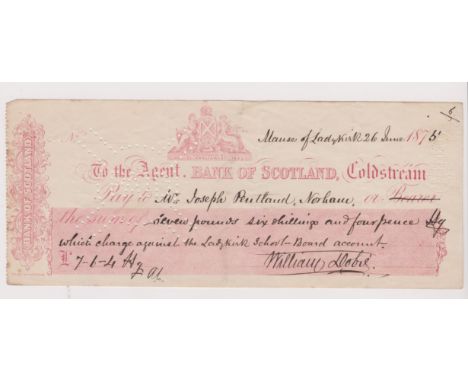 BANK OF SCOTLAND
Nº
Manse of Ladykirk 26 June 1875
To the Agent, BANK OF SCOTLAND, Coldstream
Pay to Mr. Joseph Pentland, Norham, or Bearer
the sum of Seven pounds six shillings and fourpence
which charge against the Ladykirk School-Board account.
£ 7-6-4
William Dobie.